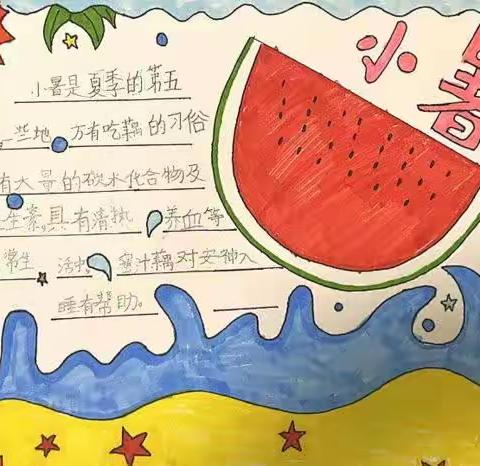 小暑
小暑是夏季的第五
一些地方有吃藕的习俗
有大量的碳水化合物及
生素,具有清热养血等
常生活中,蜜汁藕对安神入
睡有帮助。